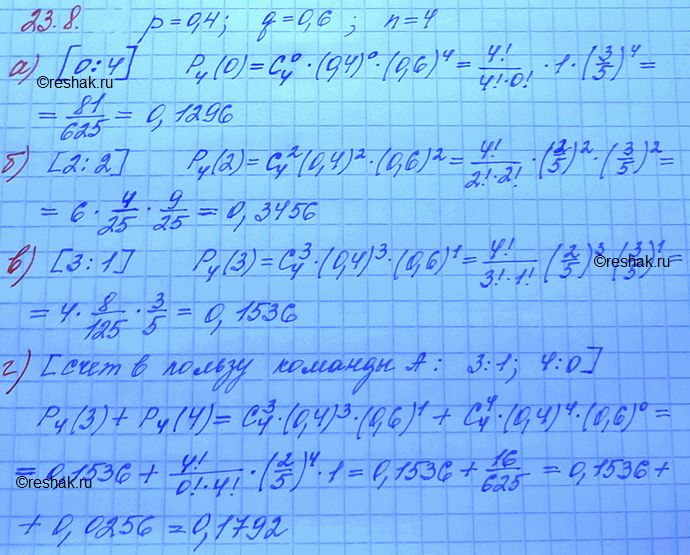 23.8. p=0,4; q=0,6; n=4
а) [0:4] P₄(0)=C₄⁰·(0,4)⁰·(0,6)⁴=4!/(4!·0!)·1·(3/5)⁴=
=81/625=0,1296
©Reshak.ru
©Reshak.ru
б) [2:2] P₄(2)=C₄²(0,4)²·(0,6)²=4!/(2!·2!)·(2/5)²·(3/5)²=
=6·4/25·9/25=0,3456
в) [3:1] P₄(3)=C₄³·(0,4)³·(0,6)¹=4!/(3!·1!)(2/5)³·(3/5)¹=
©Reshak.ru
=4·8/125·3/5=0,1536
г) [счет в пользу команды А: 3:1; 4:0]
P₄(3)+P₄(4)=C₄³·(0,4)³·(0,6)¹+C₄⁴·(0,4)⁴·(0,6)⁰=
=0,1536+4!/(0!·4!)·(2/5)⁴·1=0,1536+16/625=0,1536+
©Reshak.ru
©Reshak.ru
+0,0256=0,1792